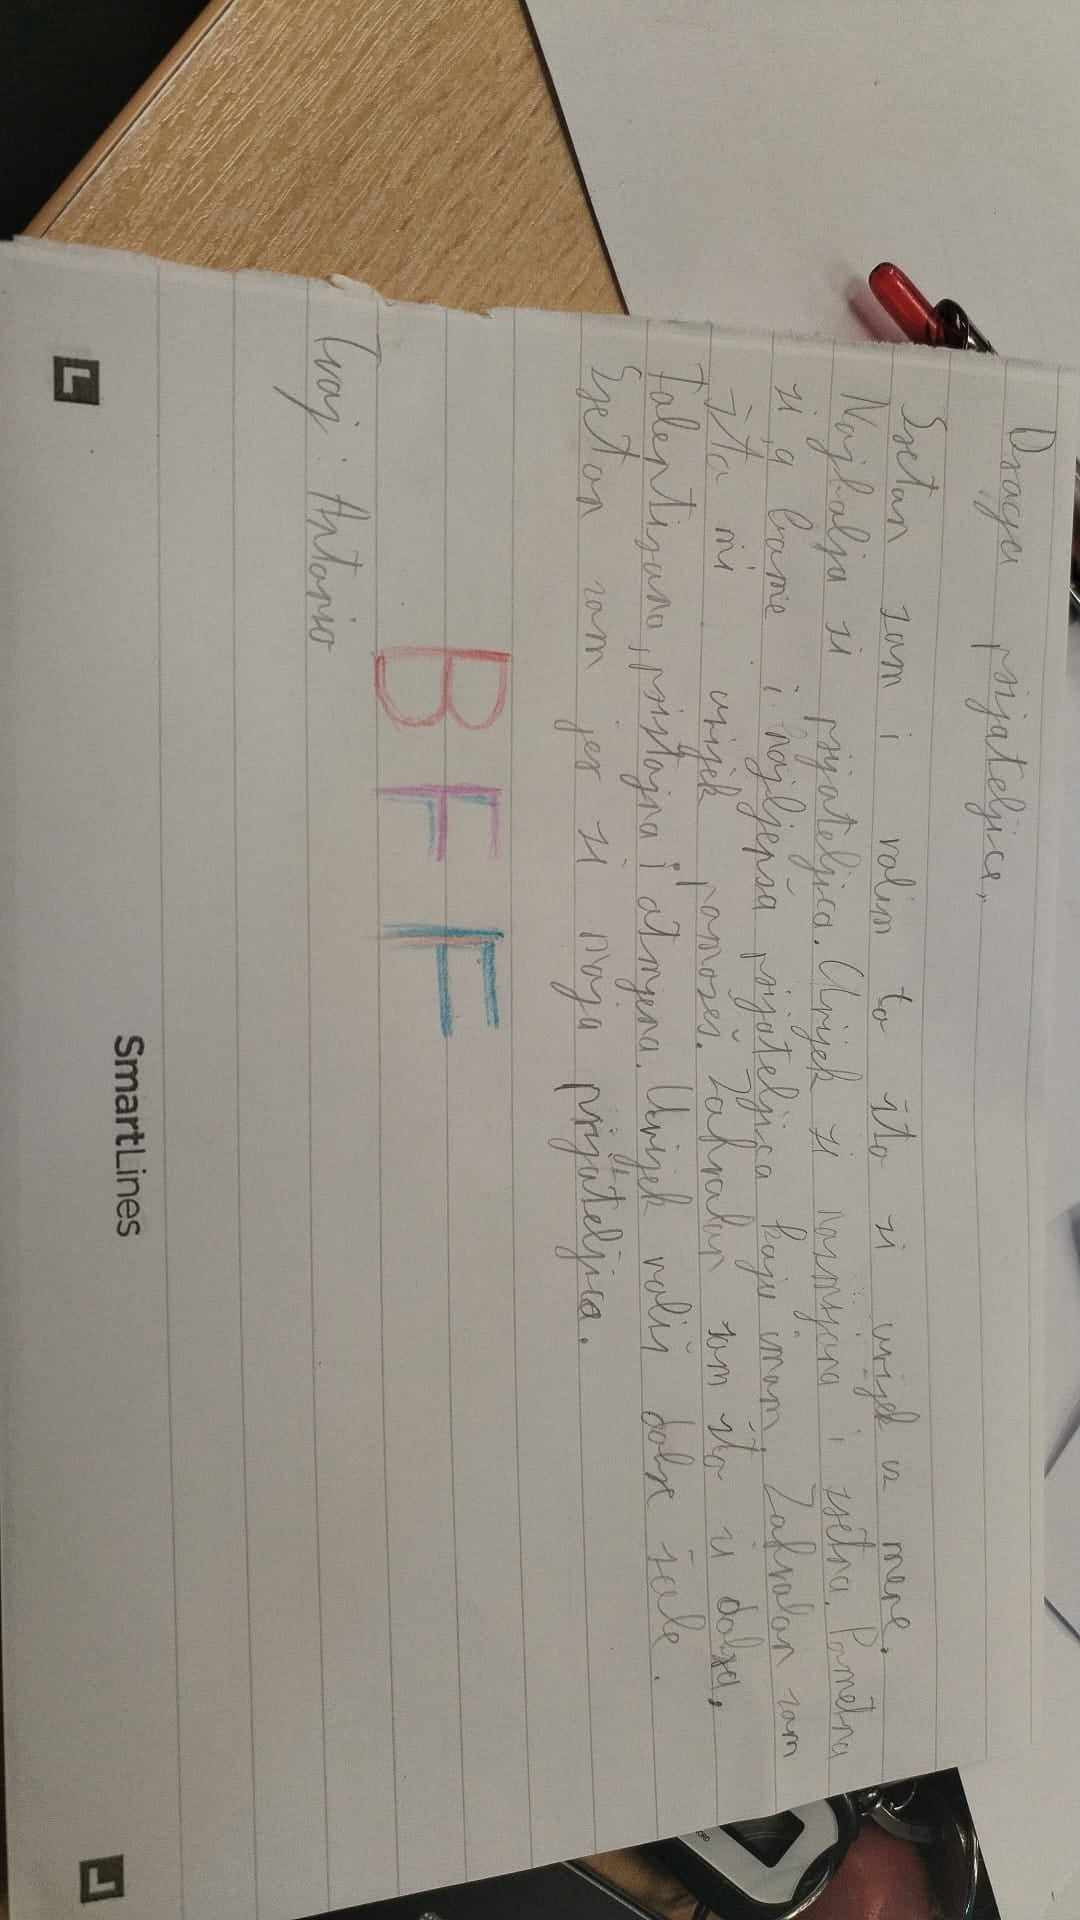 Draga prijateljice,
Sretan sam i volim to što si uvijek uz mene.
Najbolja si prijateljica. Uvijek si nasmijana i sretna. Pametna
si q barie i najljepša prijateljica koju imam. Zahvalan sam
što mi uvijek pomožeš. Zahvalan sam što si dobra,
Talentirana, pristojna i otmjena. Uvijek voliš dobre šale.
Sretan sam jer si moja prijateljica.
BFF
Tvoj Antonio
SmartLines